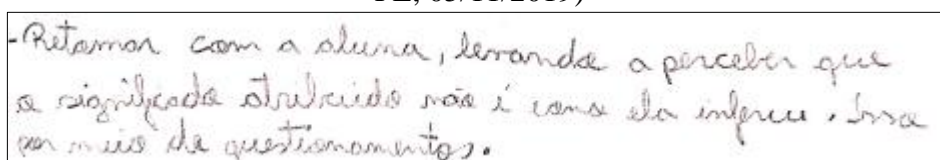 - Retomar com a aluna, levando a perceber que
o significado atribuído não é como ela inferiu. Isso
por meio de questionamentos.